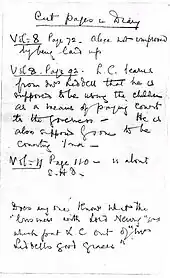 Cut Pages in Diary
Vol: 8 Page 72. Alice not improved
by being laid up
Vol 8. Page 92. L.C. learns
from Mrs Liddell that he is
supposed to be using the children
as a means of paying court
to the governess — He is
also supposed by some to be
courting Ina —
Vol: 11 Page 110 — is about
E.H.D.
Does any one know what the
"business with Lord Newry" was
which put L C out of "Mrs
Liddell's good graces"